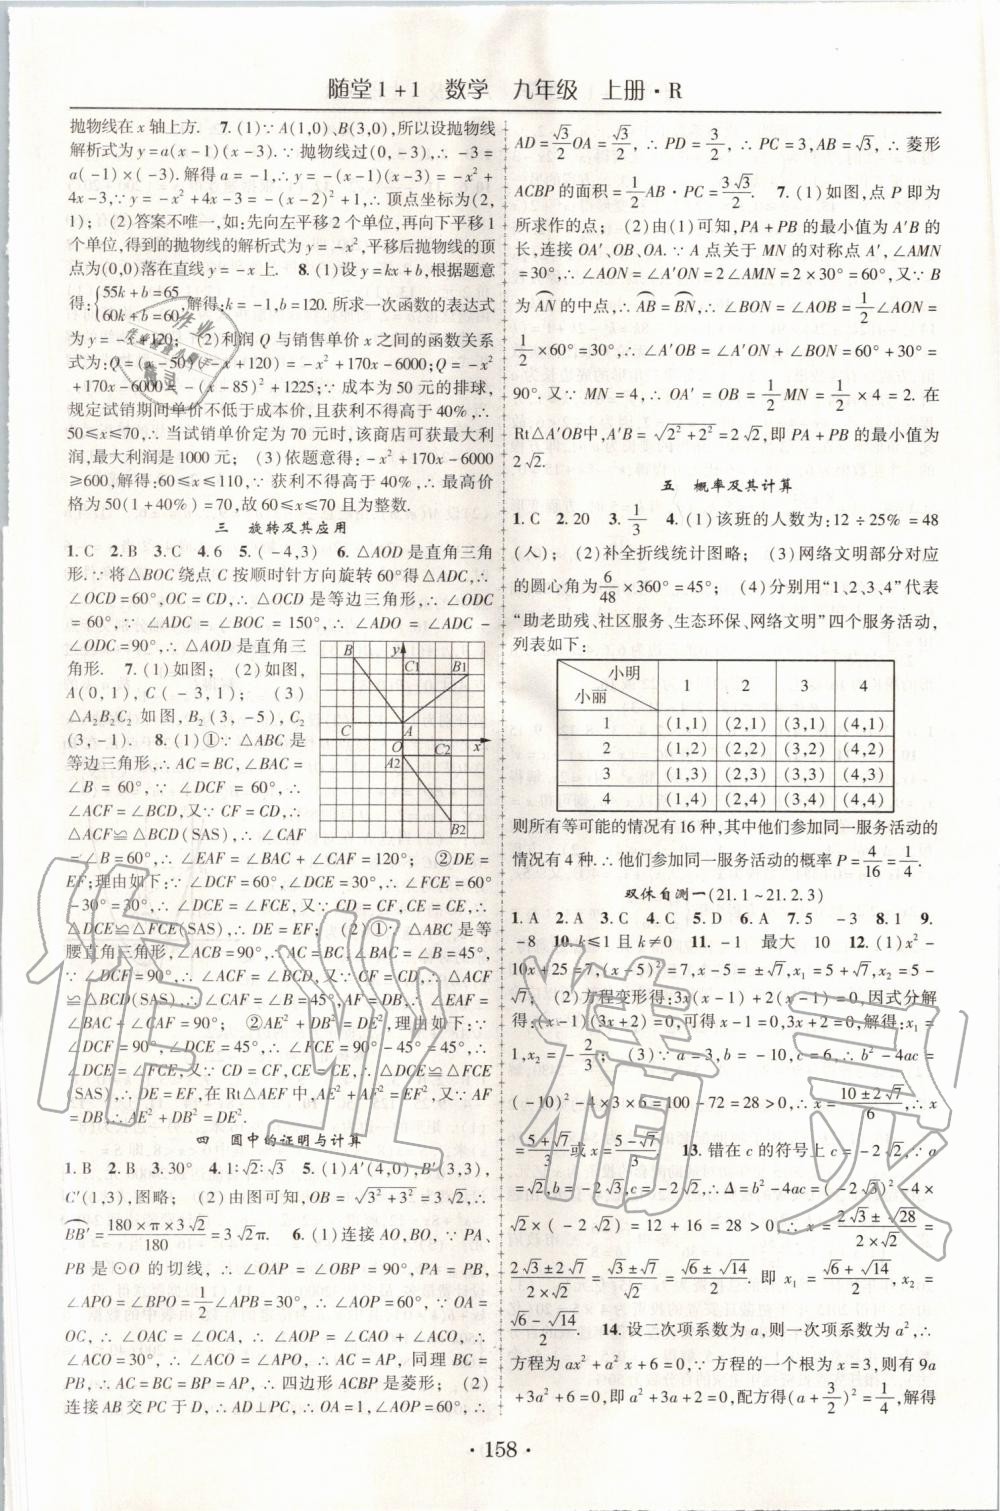 随堂1+1 数学 九年级 上册·R
抛物线在x轴上方. 7.(1)∵A(1,0)、B(3,0),所以设抛物线
解析式为y=a(x-1)(x-3).∵抛物线过(0,-3),∴-3=
a(-1)×(-3).解得a=-1,∴y=-(x-1)(x-3)=-x²+
4x-3,∵y=-x²+4x-3=-(x-2)²+1,∴顶点坐标为(2,
1); (2)答案不唯一,如:先向左平移2个单位,再向下平移1
个单位,得到的抛物线的解析式为y=-x²,平移后抛物线的顶
点为(0,0)落在直线y=-x上. 8.(1)设y=kx+b,根据题意
得:{55k+b=65 60k+b=60,解得:k=-1,b=120.所求一次函数的表达式
为y=-x+120; (2)利润Q与销售单价x之间的函数关系
式为:Q=(x-50)(-x+120)=-x²+170x-6000;Q=-x²
+170x-6000=-(x-85)²+1225;∵成本为50元的排球,
规定试销期间单价不低于成本价,且获利不得高于40%,∴
50≤x≤70,∴当试销单价定为70元时,该商店可获最大利
润,最大利润是1000元; (3)依题意得:-x²+170x-6000
≥600,解得:60≤x≤110,∵获利不得高于40%,∴最高价
格为50(1+40%)=70,故60≤x≤70且为整数.
三 旋转及其应用
1.C 2.B 3.C 4.6 5.(-4,3) 6.△AOD是直角三角
形.∵将△BOC绕点C按顺时针方向旋转60°得△ADC,∴
∠OCD=60°,OC=CD,∴△OCD是等边三角形,∴∠ODC
=60°,∵∠ADC=∠BOC=150°,∴∠ADO=∠ADC-
∠ODC=90°,∴△AOD是直角三
角形. 7.(1)如图; (2)如图,
A(0,1),C(-3,1); (3)
△A₂B₂C₂如图,B₂(3,-5),C₂
(3,-1). 8.(1)①∵△ABC是
等边三角形,∴AC=BC,∠BAC=
∠B=60°,∵∠DCF=60°,∴
∠ACF=∠BCD,又∵CF=CD,∴
△ACF≌△BCD(SAS),∴∠CAF
=∠B=60°,∴∠EAF=∠BAC+∠CAF=120°; ②DE=
EF;理由如下:∵∠DCF=60°,∠DCE=30°,∴∠FCE=60°
-30°=30°,∴∠DCE=∠FCE,又∵CD=CF,CE=CE,∴
△DCE≌△FCE(SAS),∴DE=EF; (2)①∵△ABC是等
腰直角三角形,∴AC=BC,∠ACB=90°,∠BAC=∠B=45°,
∵∠DCF=90°,∴∠ACF=∠BCD,又∵CF=CD,∴△ACF
≌△BCD(SAS),∴∠CAF=∠B=45°,AF=DB,∴∠EAF=
∠BAC+∠CAF=90°; ②AE²+DB²=DE²,理由如下:∵
∠DCF=90°,∠DCE=45°,∴∠FCE=90°-45°=45°,∴
∠DCE=∠FCE,又∵CD=CF,CE=CE,∴△DCE≌△FCE
(SAS),∴DE=EF,在Rt△AEF中,AE²+AF²=EF²,又∵AF
=DB,∴AE²+DB²=DE².
四 圆中的证明与计算
1.B 2.B 3.30° 4.1:√2:√3 5.(1)A′(4,0),B′(3,3),
C′(1,3),图略; (2)由图可知,OB=√(3²+3²)=3√2,∴
BB′=(180×π×3√2)/180=3√2π. 6.(1)连接AO,BO,∵PA、
PB是⊙O的切线,∴∠OAP=∠OBP=90°,PA=PB,
∠APO=∠BPO=1/2∠APB=30°,∴∠AOP=60°,∵OA=
OC,∴∠OAC=∠OCA,∴∠AOP=∠CAO+∠ACO,∴
∠ACO=30°,∴∠ACO=∠APO,∴AC=AP,同理BC=
PB,∴AC=BC=BP=AP,∴四边形ACBP是菱形; (2)
连接AB交PC于D,∴AD⊥PC,∴OA=1,∠AOP=60°,∴
y B C1 B1 C A O x C2 A2 B2
AD=√3/2 OA=√3/2,∴PD=3/2,∴PC=3,AB=√3,∴菱形
ACBP的面积=1/2 AB·PC=3√3/2. 7.(1)如图,点P即为
所求作的点; (2)由(1)可知,PA+PB的最小值为A′B的
长,连接OA′、OB、OA.∵A点关于MN的对称点A′,∠AMN
=30°,∴∠AON=∠A′ON=2∠AMN=2×30°=60°,又∵B
为AN的中点,∴AB=BN,∴∠BON=∠AOB=1/2∠AON=
1/2×60°=30°,∴∠A′OB=∠A′ON+∠BON=60°+30°=
90°.又∵MN=4,∴OA′=OB=1/2MN=1/2×4=2.在
Rt△A′OB中,A′B=√(2²+2²)=2√2,即PA+PB的最小值为
2√2.
五 概率及其计算
1.C 2.20 3.1/3 4.(1)该班的人数为:12÷25%=48
(人); (2)补全折线统计图略; (3)网络文明部分对应
的圆心角为6/48×360°=45°; (4)分别用“1、2、3、4”代表
“助老助残、社区服务、生态环保、网络文明”四个服务活动,
列表如下:
小明 小丽 1 2 3 4
1 (1,1) (2,1) (3,1) (4,1)
2 (1,2) (2,2) (3,2) (4,2)
3 (1,3) (2,3) (3,3) (4,3)
4 (1,4) (2,4) (3,4) (4,4)
则所有等可能的情况有16种,其中他们参加同一服务活动的
情况有4种.∴他们参加同一服务活动的概率P=4/16=1/4.
双休自测一(21.1~21.2.3)
1.A 2.A 3.C 4.C 5.D 6.A 7.5 -3 8.1 9.
-8 10.k≤1且k≠0 11.-1 最大 10 12.(1)x²-
10x+25=7,(x-5)²=7,x-5=±√7,x₁=5+√7,x₂=5-
√7; (2)方程变形得:3x(x-1)+2(x-1)=0,因式分解
得:(x-1)(3x+2)=0,可得x-1=0,3x+2=0,解得:x₁=
1,x₂=-2/3; (3)∵a=3,b=-10,c=6,∴b²-4ac=
(-10)²-4×3×6=100-72=28>0,∴x=(10±2√7)/6,∴x
=(5+√7)/3或x=(5-√7)/3. 13.错在c的符号上c=-2√2,∵a
=√2,b=-4√3,c=-2√2,∴Δ=b²-4ac=(-4√3)²-4×
√2×(-2√2)=12+16=28>0,∴x=(2√3±√28)/(2×√2)=
(2√3±2√7)/(2×√2)=(√3±√7)/√2=(√6±√14)/2.即x₁=(√6+√14)/2,x₂=
(√6-√14)/2. 14.设二次项系数为a,则一次项系数为a²,∴
方程为ax²+a²x+6=0,∵方程的一个根为x=3,则有9a
+3a²+6=0,即a²+3a+2=0,配方得(a+3/2)²=1/4,解得
·158·
作业精灵